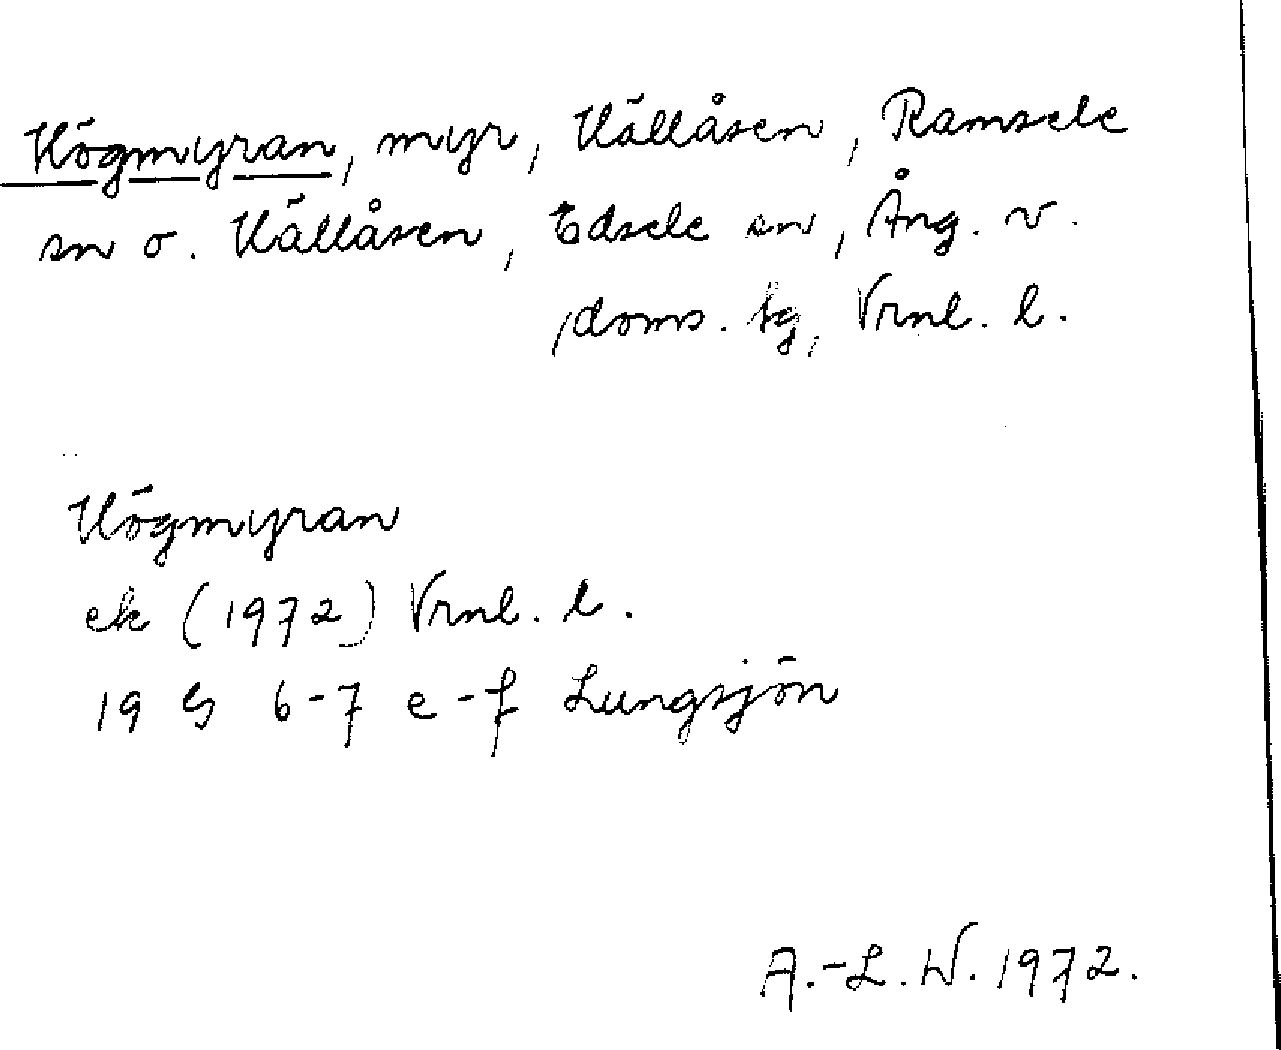 Högmyran, myr, Hällåsen, Ramsele
sn o. Hällåsen, Edsele sn, Ång. v.
doms. tg, Vrnl. l.
Högmyran
ek (1972) Vrnl. l.
19 G 6-7 e-f Lungsjön
A.-L. W. 1972.